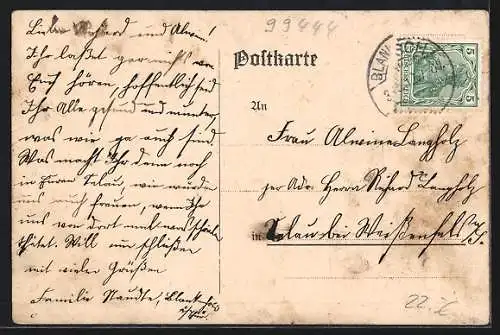 99444
Liebe Richard und Alwine!
Ihr lasset gar nichts von
Euch hören, hoffentlich seid
Ihr Alle gesund und munter,
was wir ja auch sind.
Was macht Ihr denn noch
in Eurem Selau, wir würden
uns auch freuen, wenn Ihr
uns von dort mal was
thätet. Will nun schließen
mit vielen Grüßen
Familie Staudte, Blank
Postkarte
An
Frau Alwine Langholz
per Adr. Herrn Richard Langholz
in Selau bei Weißenfels a/S.
BLANK
5 5
22.-£